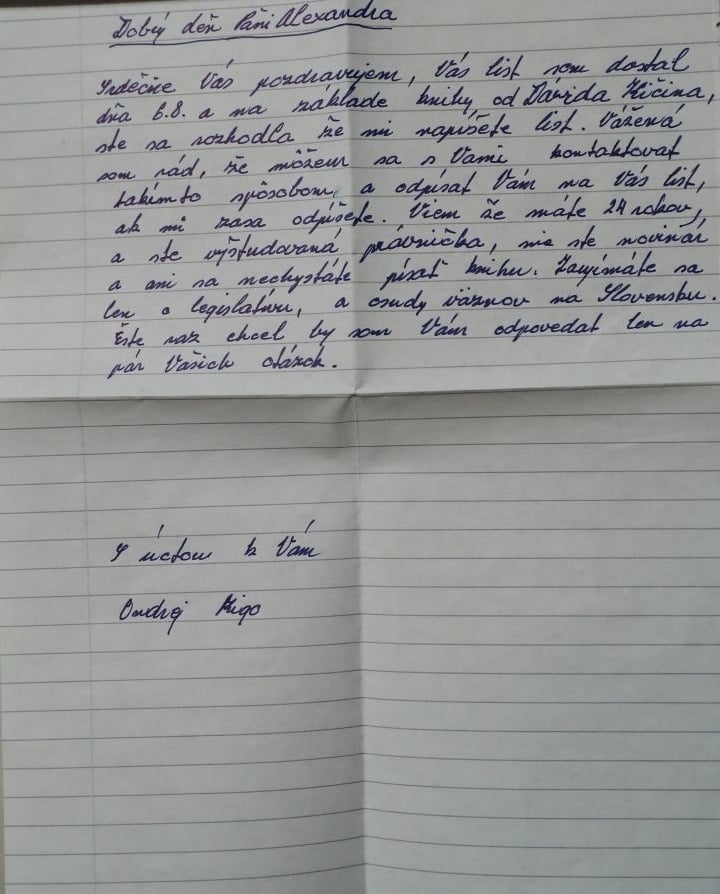 Dobrý deň Pani Alexandra
Srdečne Vás pozdravujem, Váš list som dostal
dňa 6.8. a na základe knihy, od Dávida Kičina,
ste sa rozhodla že mi napíšete list. Vážená
som rád, že môžem sa s Vami kontaktovat
takímto spôsobom, a odpísat Vám na Váš list,
ak mi zasa odpíšete. Viem že máte 24 rokov,
a ste vyštudovaná právnička, nie ste novinár
a ani sa nechystáte písať knihu. Zaujímáte sa
len o legislatívu, a osudy väznov na Slovensku.
Ešte raz chcel by som Vám odpovedat len na
pár Vašich otázok.
S úctou k Vám
Ondrej Rigo